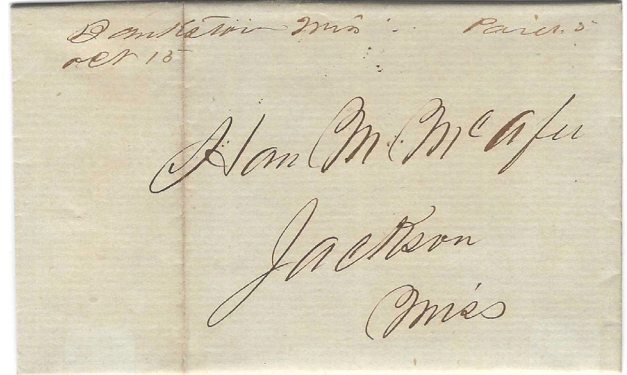 Bankston Miss Paid 5
Oct 15
Hon M. McAfee
Jackson
Miss